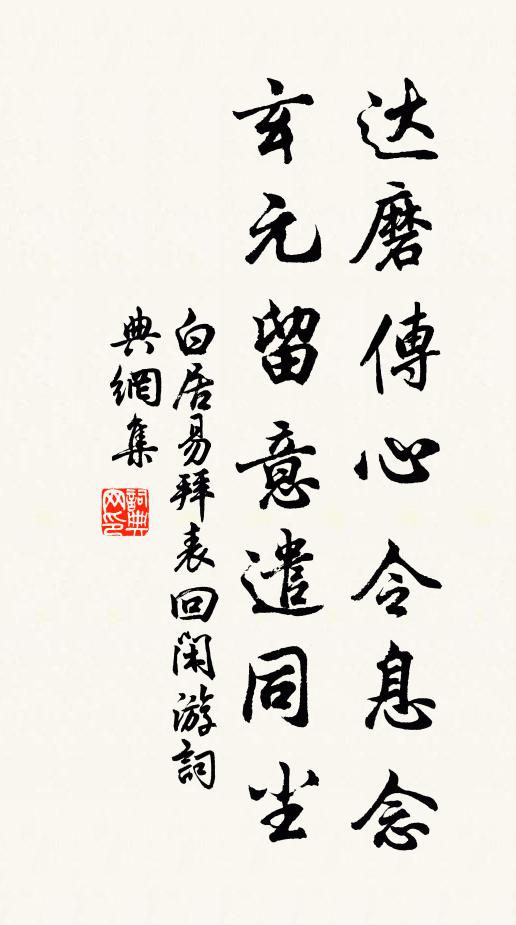 达磨傳心令息念
玄元留意遣同尘
白居易拜表回閑游詞
典網集
詞典
网印